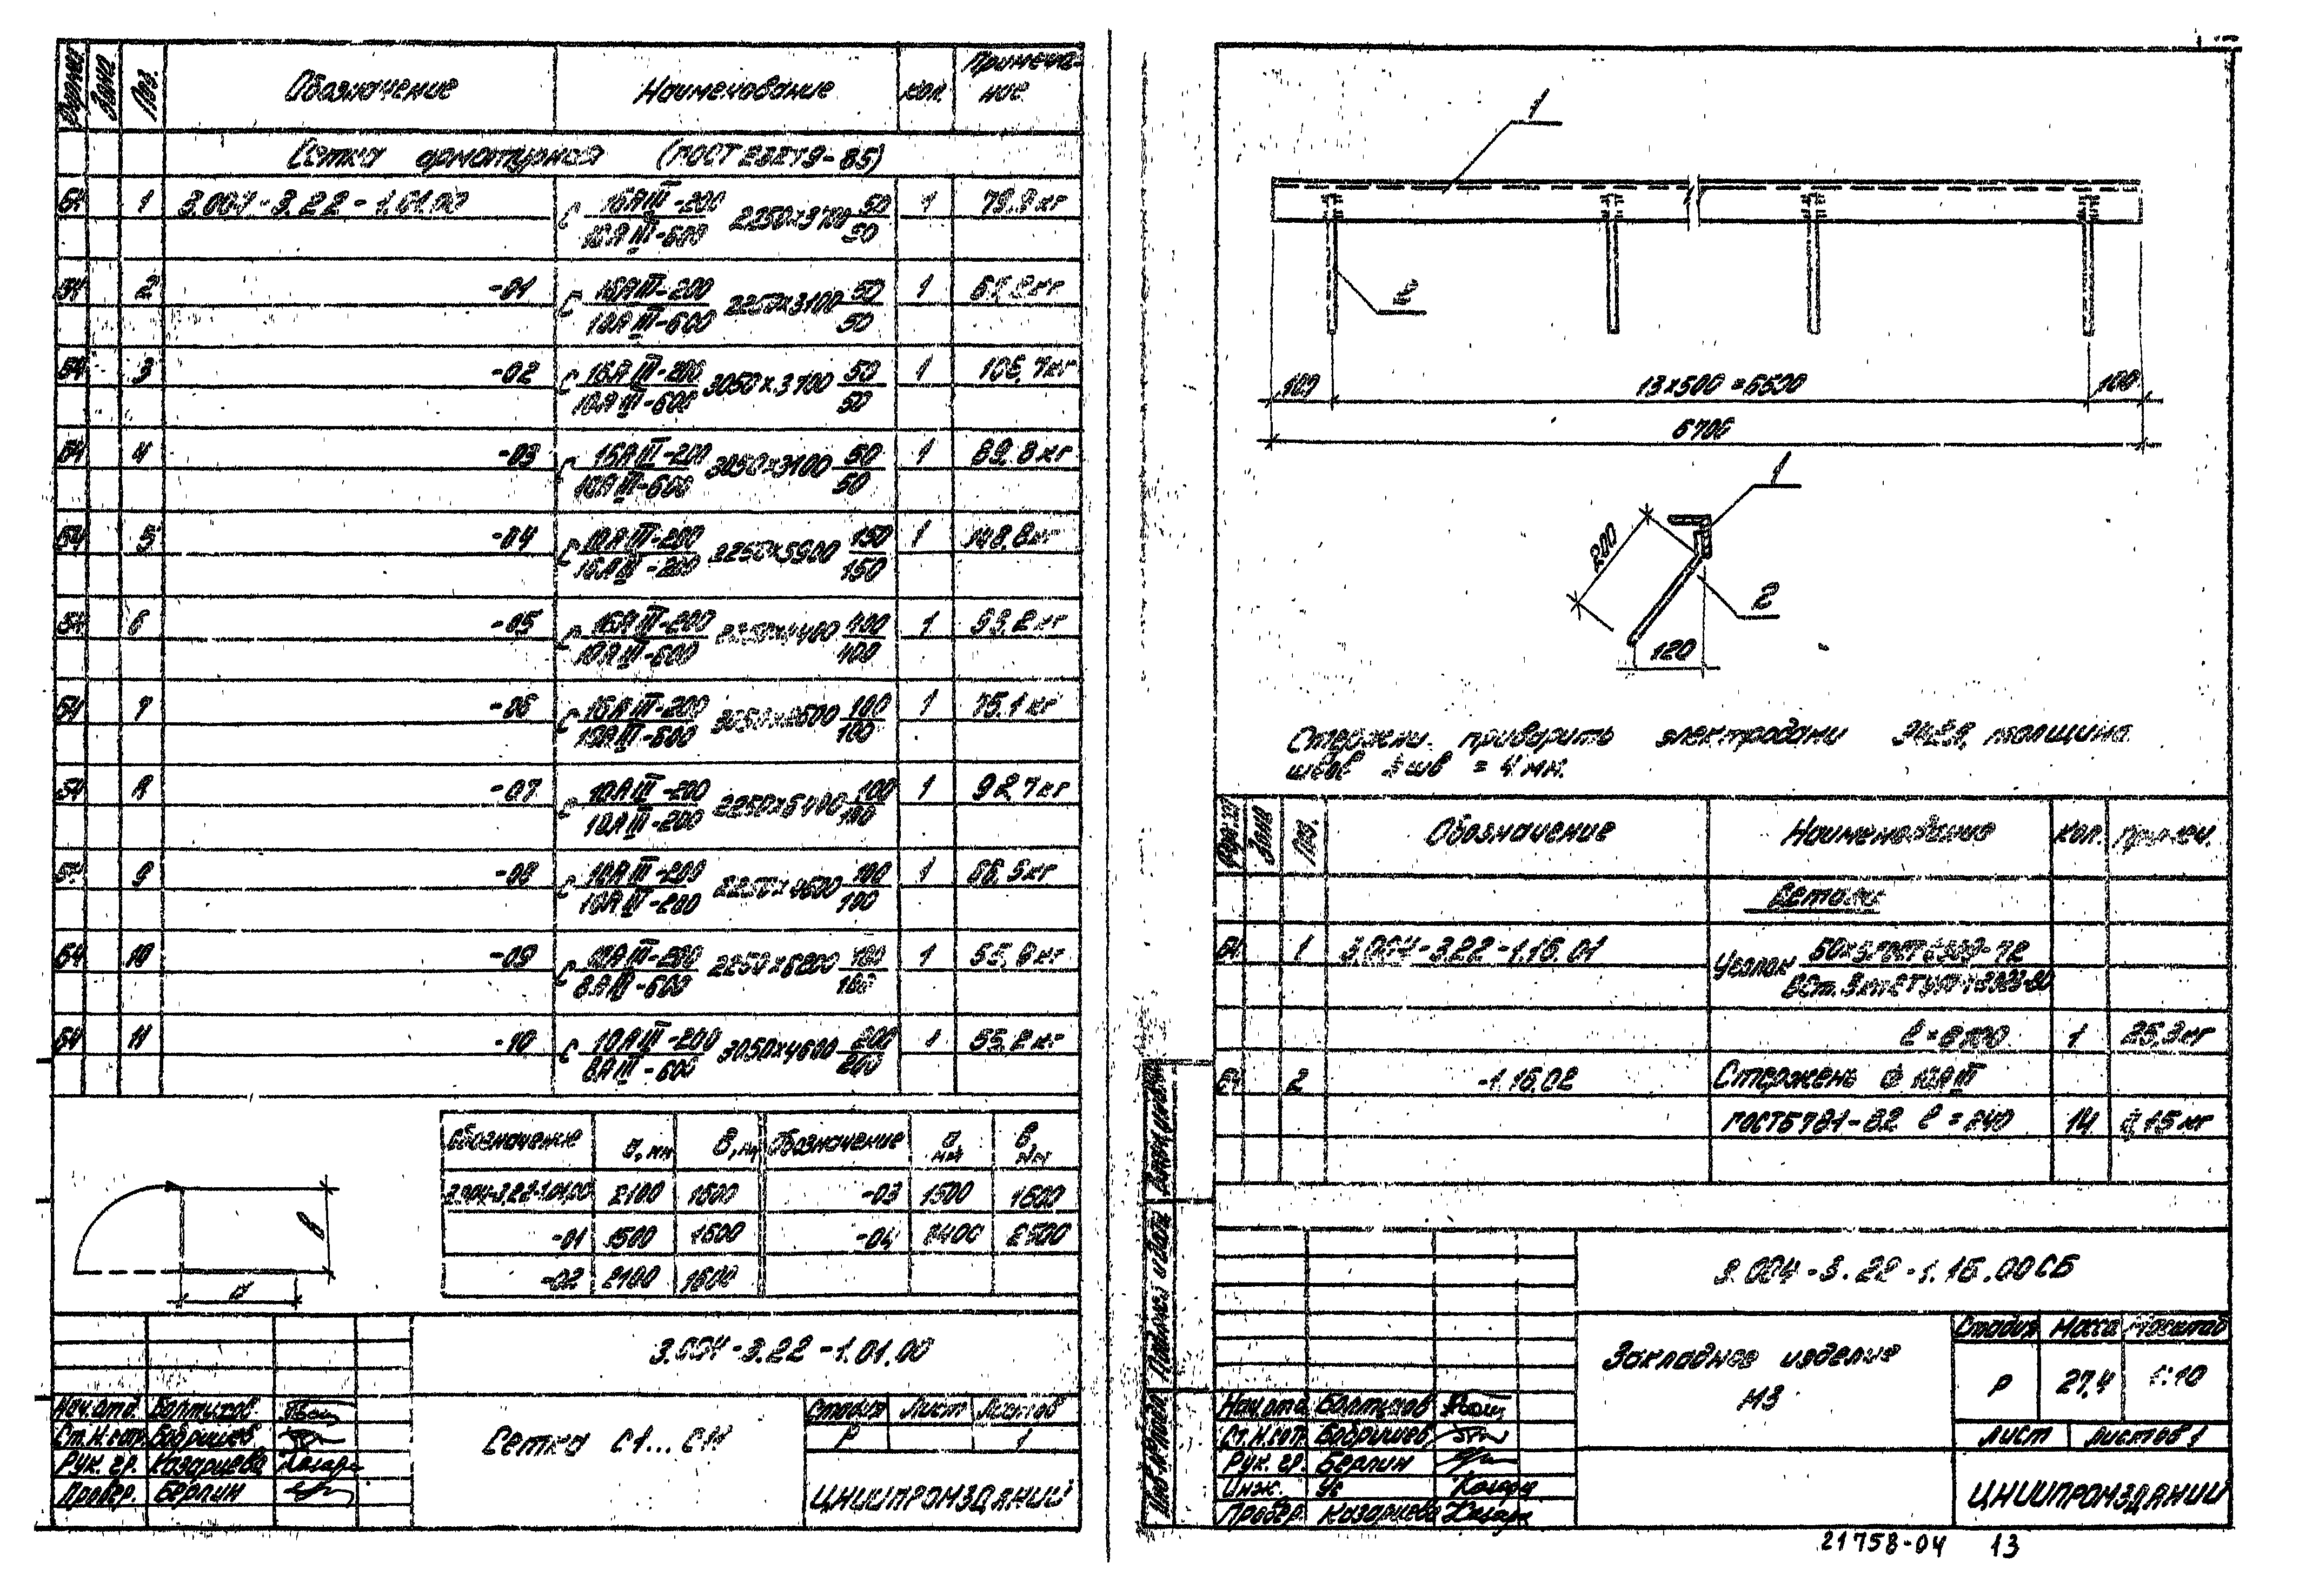 Формат Зона Поз. Обозначение Наименование Кол. Примеча-
ние
Сетка арматурная (ГОСТ 23279-85)
БЧ 1 3.004-3.22-1.01.00 С 16АIII-200/10АIII-600 2250×3700 50/50 1 79,9кг
БЧ 2 -01 С 16АIII-200/10АIII-600 2250×3100 50/50 1
БЧ 3 -02 С 16АIII-200/10АIII-600 3050×3700 50/50 1
БЧ 4 -03 С 16АIII-200/10АIII-600 3050×3100 50/50 1 89,8кг
БЧ 5 -04 С 10АIII-200/16АIII-200 2250×5900 150/150 1 148,8кг
БЧ 6 -05 С 16АIII-200/10АIII-600 2250×4400 100/100 1 93,2кг
БЧ 7 -06 С 16АIII-200/10АIII-600 3050×2600 100/100 1 75,1кг
БЧ 8 -07 С 10АIII-200/10АIII-200 2250×6400 100/100 1 92,7кг
БЧ 9 -08 С 10АIII-200/10АIII-200 2250×4600 100/100 1 66,5кг
БЧ 10 -09 С 10АIII-200/8АIII-600 2250×6200 100/100 1
БЧ 11 -10 С 10АIII-200/8АIII-600 3050×4600 200/200 1 55,2кг
Обозначение а, мм в, мм Обозначение а мм в мм
3.004-3.22-1.01.00 2100 1600 -03 1500 1600
-01 1500 1600 -04 3400 2500
-02 2100 1600
а
в
3.004-3.22-1.01.00
Нач.отд. Болтухов
Ст.н.сотр. Бобришев
Рук. гр. Казарцева
Провер. Берлин
Сетка С1...С11
Стадия Лист Листов
Р 1
ЦНИИПРОМЗДАНИЙ
1
2
100 13×500=6500 100
6700
1
200
2
120
Стержни приварить электродами Э42А, толщина
швов hшв = 4 мм.
Формат Зона Поз. Обозначение Наименование Кол. Примеч.
Детали
БЧ 1 3.004-3.22-1.16.01 Уголок 50×5 ГОСТ 8509-72
ВСт.3кп2
1
БЧ 2 -1.16.02 Стержень Ф 10АIII
ГОСТ 5781-82 ℓ=240 14 0,15кг
3.004-3.22-1.16.00СБ
Закладное изделие
М3
Стадия Масса Масштаб
Р 27,4 1:10
Лист Листов 1
Нач.отд. Болтухов
Ст.н.сот. Бобришев
Рук. гр. Берлин
Инж. Ус
Провер. Казарцева
ЦНИИПРОМЗДАНИЙ
Инв.№ подл. Подпись и дата Взам.инв.№
21758-04 13